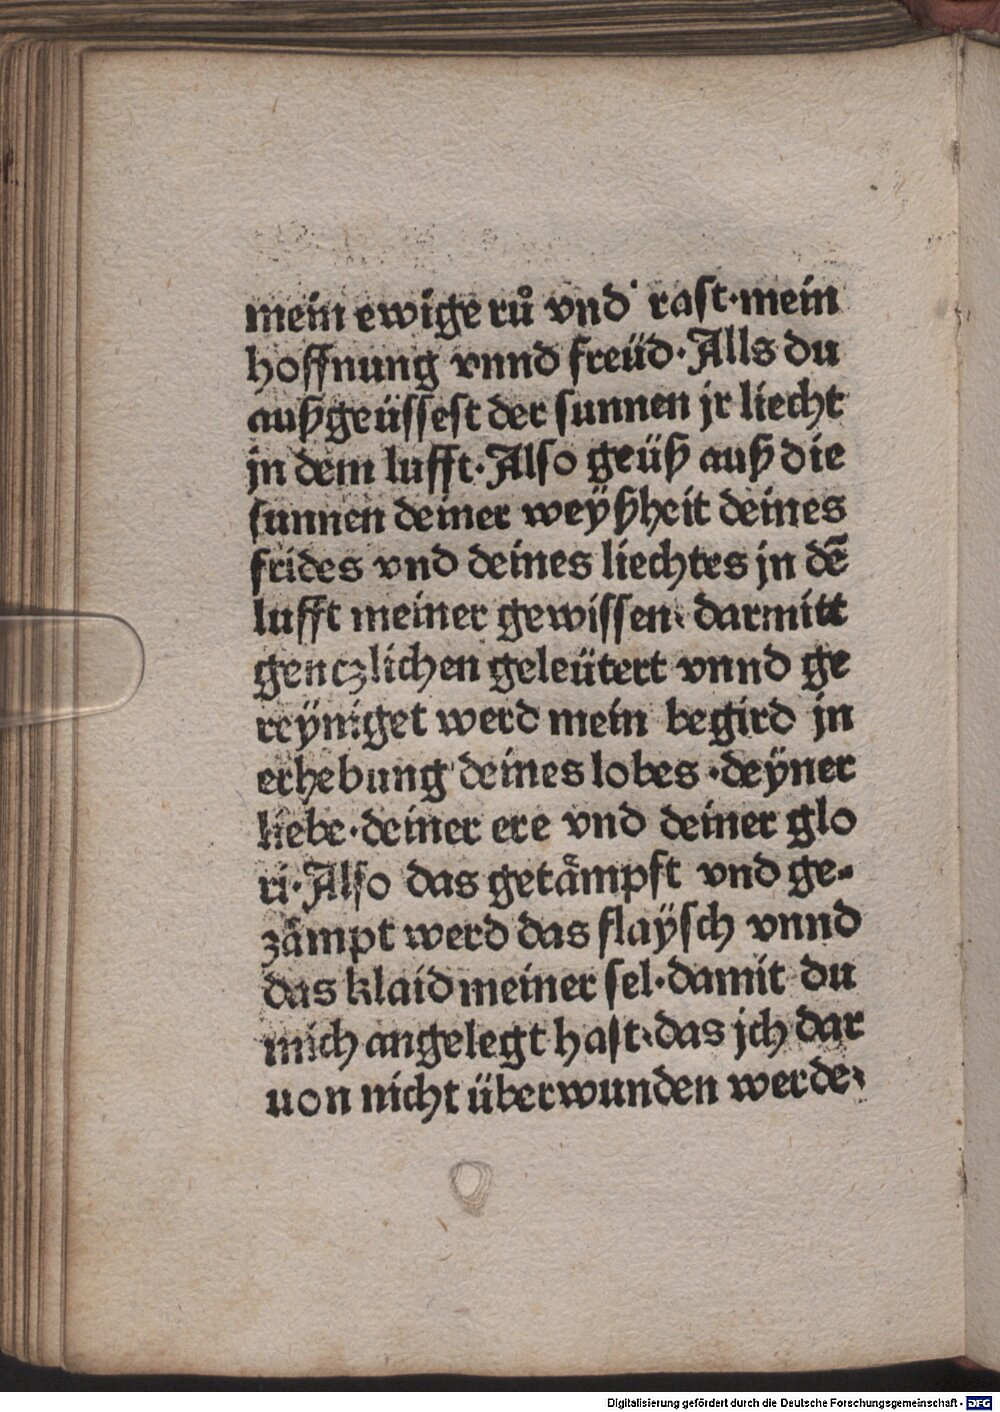 mein ewige rů vnd rast·mein
hoffnung vnnd freüd·Alls du
außgeüssest der sunnen jr liecht
jn dem lufft·Also geüß auß die
sunnen deiner weÿßheit deines
frides vnd deines liechtes jn dē
lufft meiner gewissen· darmitt
genczlichen geleütert vnnd ge
reÿniget werd mein begird jn
erhebung deines lobes ·deÿner
liebe·deiner ere vnd deiner glo
ri·Also das getåmpft vnd ge-
zåmpt werd das flaÿsch vnnd
das klaid meiner sel·damit du
mich angelegt hast·das jch dar
uon nicht überwunden werde·
Digitalisierung gefördert durch die Deutsche Forschungsgemeinschaft - DFG